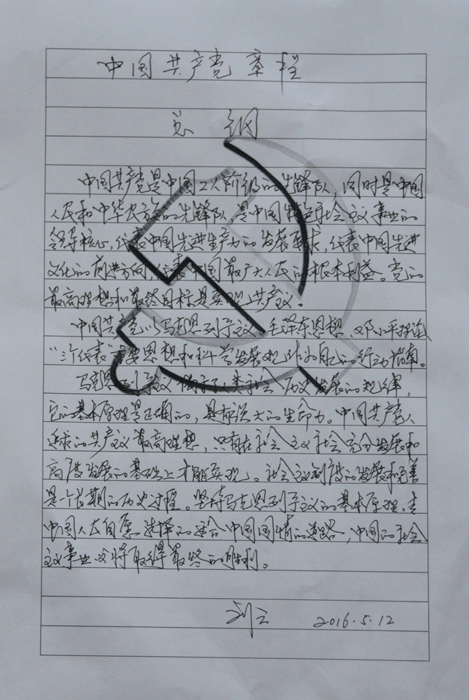 中国共产党章程
总 纲
中国共产党是中国工人阶级的先锋队，同时是中国
人民和中华民族的先锋队，是中国特色社会主义事业的
领导核心，代表中国先进生产力的发展要求，代表中国先进
文化的前进方向，代表中国最广大人民的根本利益。党的
最高理想和最终目标是实现共产主义。
中国共产党以马克思列宁主义、毛泽东思想、邓小平理论、
“三个代表”重要思想和科学发展观作为自己的行动指南。
马克思列宁主义揭示了人类社会历史发展的规律，
它的基本原理是正确的，具有强大的生命力。中国共产党人
追求的共产主义最高理想，只有在社会主义社会充分发展和
高度发达的基础上才能实现。社会主义制度的发展和完善
是个长期的历史过程。坚持马克思列宁主义的基本原理，走
中国人民自愿选择的适合中国国情的道路，中国的社会
主义事业必将取得最终的胜利。
2016.5.12